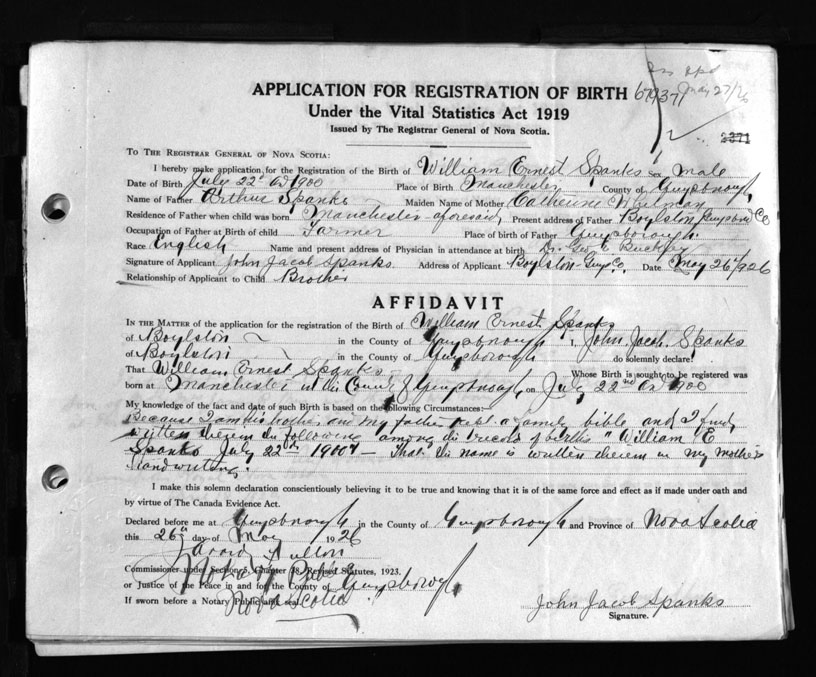 May 27/26
APPLICATION FOR REGISTRATION OF BIRTH 67937
Under the Vital Statistics Act 1919
Issued by The Registrar General of Nova Scotia.
2371
TO THE REGISTRAR GENERAL OF NOVA SCOTIA:
I hereby make application for the Registration of the Birth of William Ernest Spanks Sex Male
Date of Birth July 22nd AD 1900 Place of Birth Manchester County of Guysborough
Name of Father Arthur Spanks Maiden Name of Mother Catherine
Residence of Father when child was born Manchester aforesaid Present address of Father Boylston Guysboro Co
Occupation of Father at Birth of child Farmer Place of birth of Father Guysborough
Race English Name and present address of Physician in attendance at birth Dr. Geo E. Buckley
Signature of Applicant John Jacob Spanks. Address of Applicant Boylston Guys Co. Date May 26th 1926
Relationship of Applicant to Child Brother
AFFIDAVIT
IN THE MATTER of the application for the registration of the Birth of William Ernest Spanks
of Boylston in the County of Guysborough I, John Jacob Spanks
of Boylston in the County of Guysborough do solemnly declare:
That William Ernest Spanks Whose Birth is sought to be registered was
born at Manchester in the County of Guysborough on July 22nd AD 1900
My knowledge of the fact and date of such Birth is based on the following Circumstances:—
Because I am his brother and my father kept a family bible and I find
written therein the following among the record of births "William E
Spanks July 22nd 1900" — That the name is written therein in my mother's
handwriting.
I make this solemn declaration conscientiously believing it to be true and knowing that it is of the same force and effect as if made under oath and
by virtue of The Canada Evidence Act.
Declared before me at Guysborough in the County of Guysborough and Province of Nova Scotia
this 26th day of May 1926
Fulton
Commissioner under Section 5, Chapter 38, Revised Statutes, 1923. Notary Public
or Justice of the Peace in and for the County of Guysborough
If sworn before a Notary Public affix seal Nova Scotia
John Jacob Spanks
Signature.